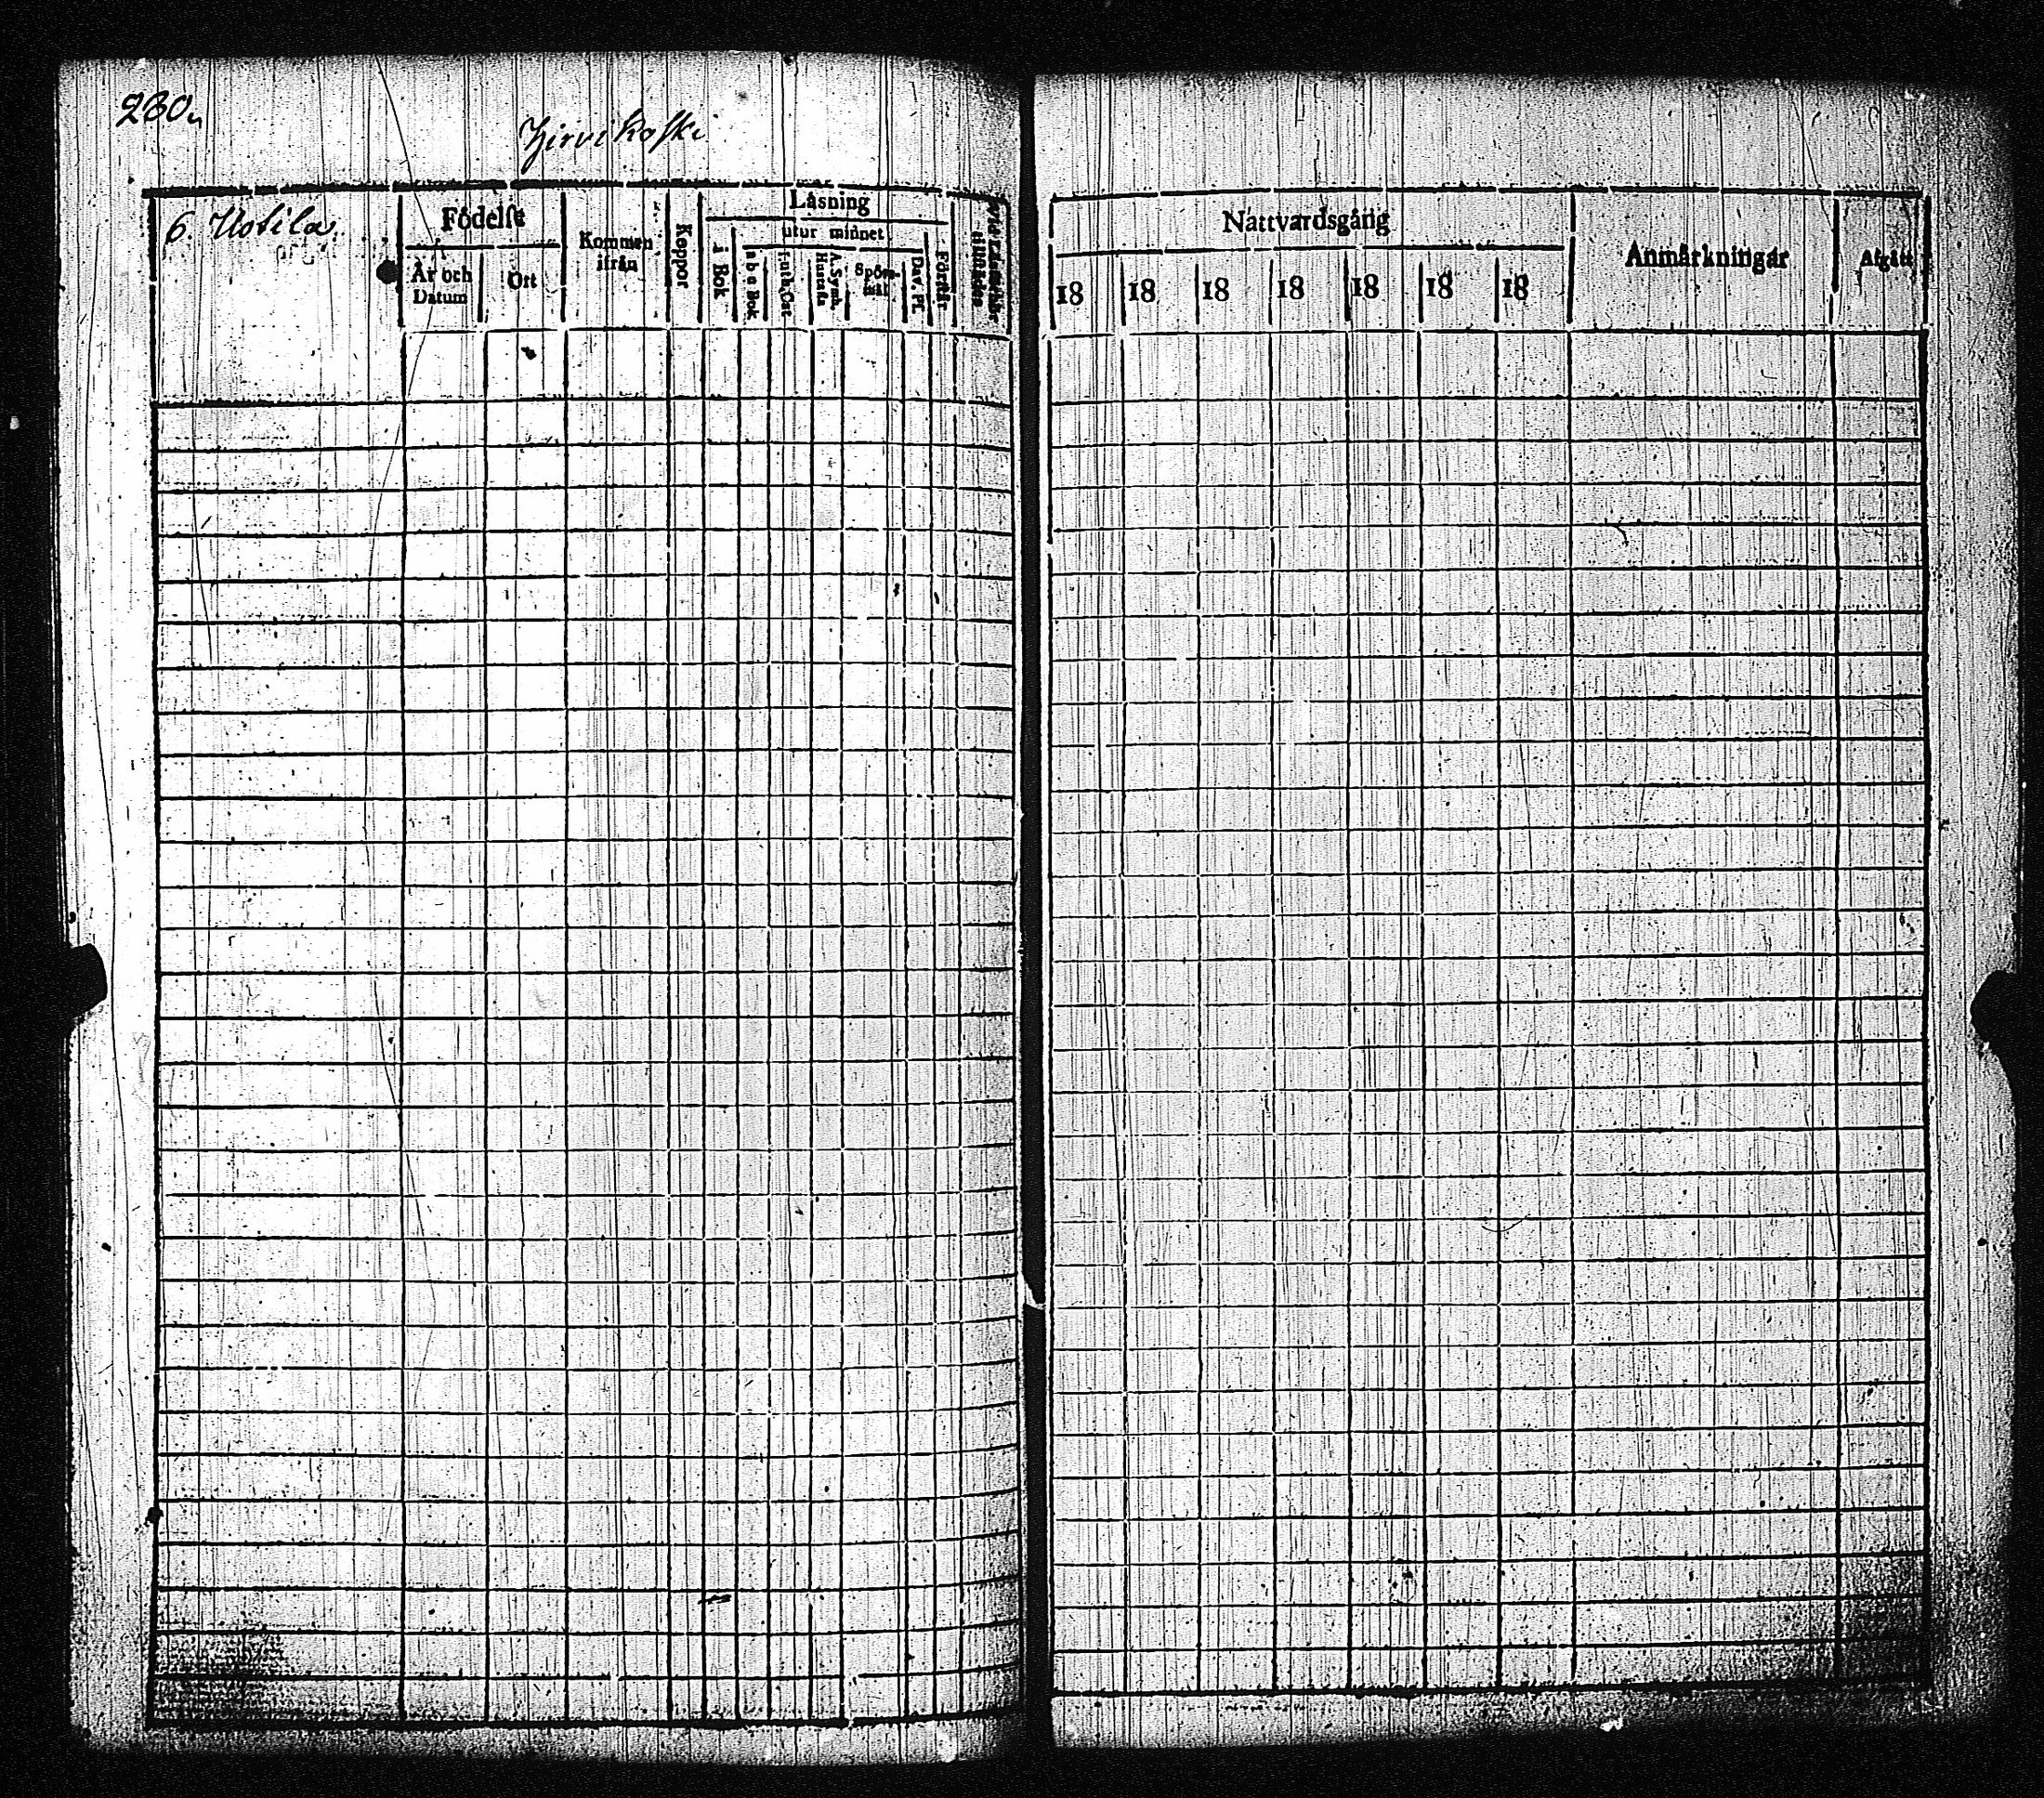 230.
Hirvikoski
6. Uotila
Födelse
År och Datum
Ort
Kommen ifrån
Koppor
Läsning
i Bok
utur minnet
a b c Bok
Luth. Cat.
A. Symb. Hustafla
Spörsmål
Dav. Ps.
Förstår
Nattvardsgång
18 18 18 18 18 18 18
Anmärkningar
Afgått